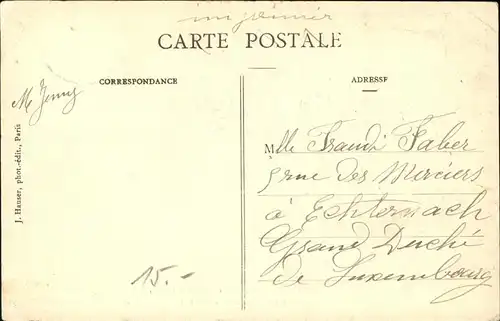 imprimér
CARTE POSTALE
CORRESPONDANCE
ADRESSE
M Jenny
Mlle Frandi Faber
5 rue des Merciers
à Echternach
Grand Duché
de Luxembourg
15.-
J. Hauser, phot.-édit., Paris